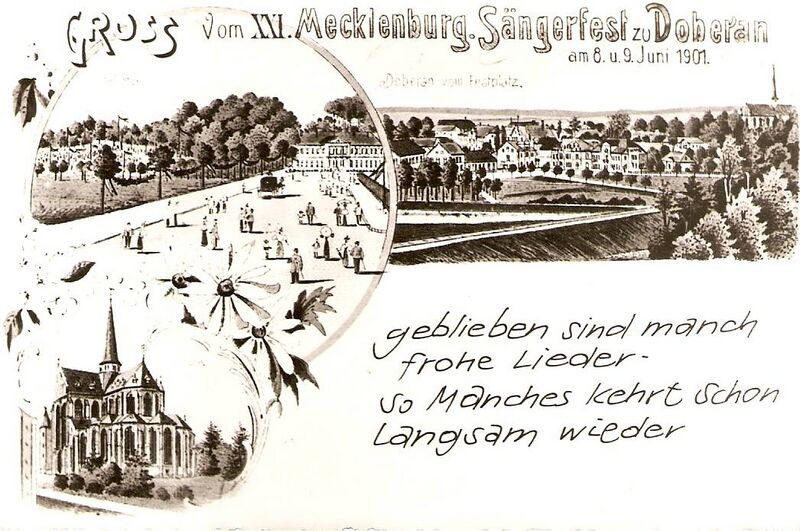 GRUSS vom XXI. Mecklenburg. Sängerfest zu Doberan
am 8. u. 9. Juni 1901.
Doberan vom Festplatz.
geblieben sind manch
frohe Lieder-
so Manches kehrt schon
Langsam wieder